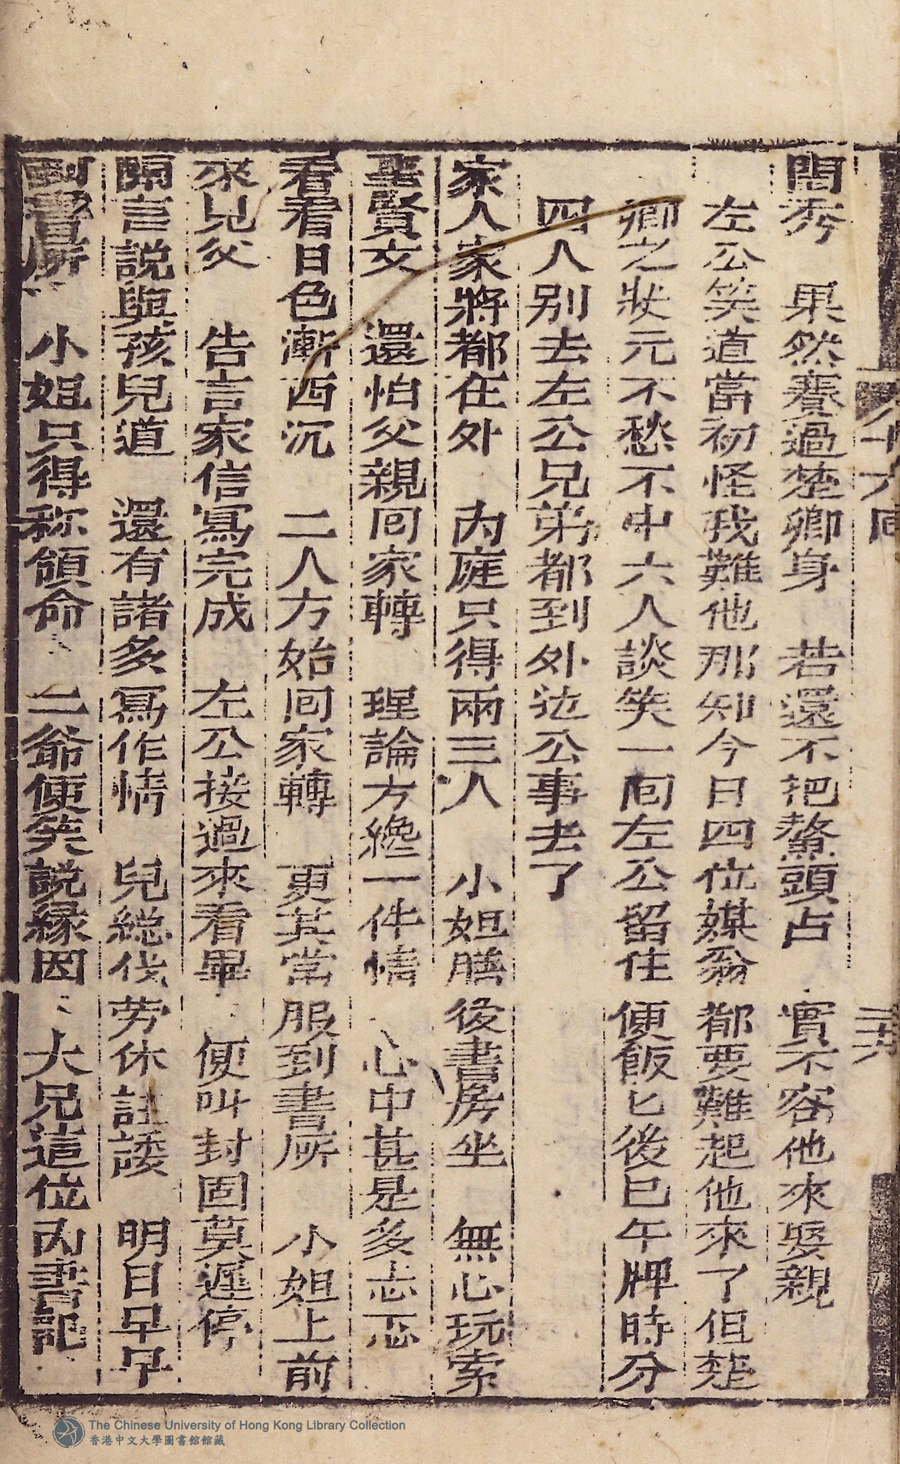 閨秀　果然賽過楚卿身　若還不把鰲頭占　實不容他來娶親
左公笑道當初怪我難他那知今日四位媒翁都要難起他來了但楚
卿之狀元不愁不中六人談笑一囘左公留住便飯匕後已午牌時分
四人别去左公兄弟都到外边公事去了
家人家將都在外　内庭只得兩三人　小姐膳後書房坐　無心玩索
聖賢文　還怕父親囘家轉　理論方纔一件情　心中甚是多忐忑
看看日色漸西沉　二人方始囘家轉　更其常服到書所　小姐上前
來見父　告言家信寫完成　左公接過來看畢　便叫封固莫遲停
開言説與孩兒道　還有諸多寫作情　兒総伐劳休諉　明日早早
到書所　小姐只得称領命　二爺便笑説縁因　大兄這位内書記
八十六囘
三十六
The Chinese University of Hong Kong Library Collection
香港中文大學圖書館館藏